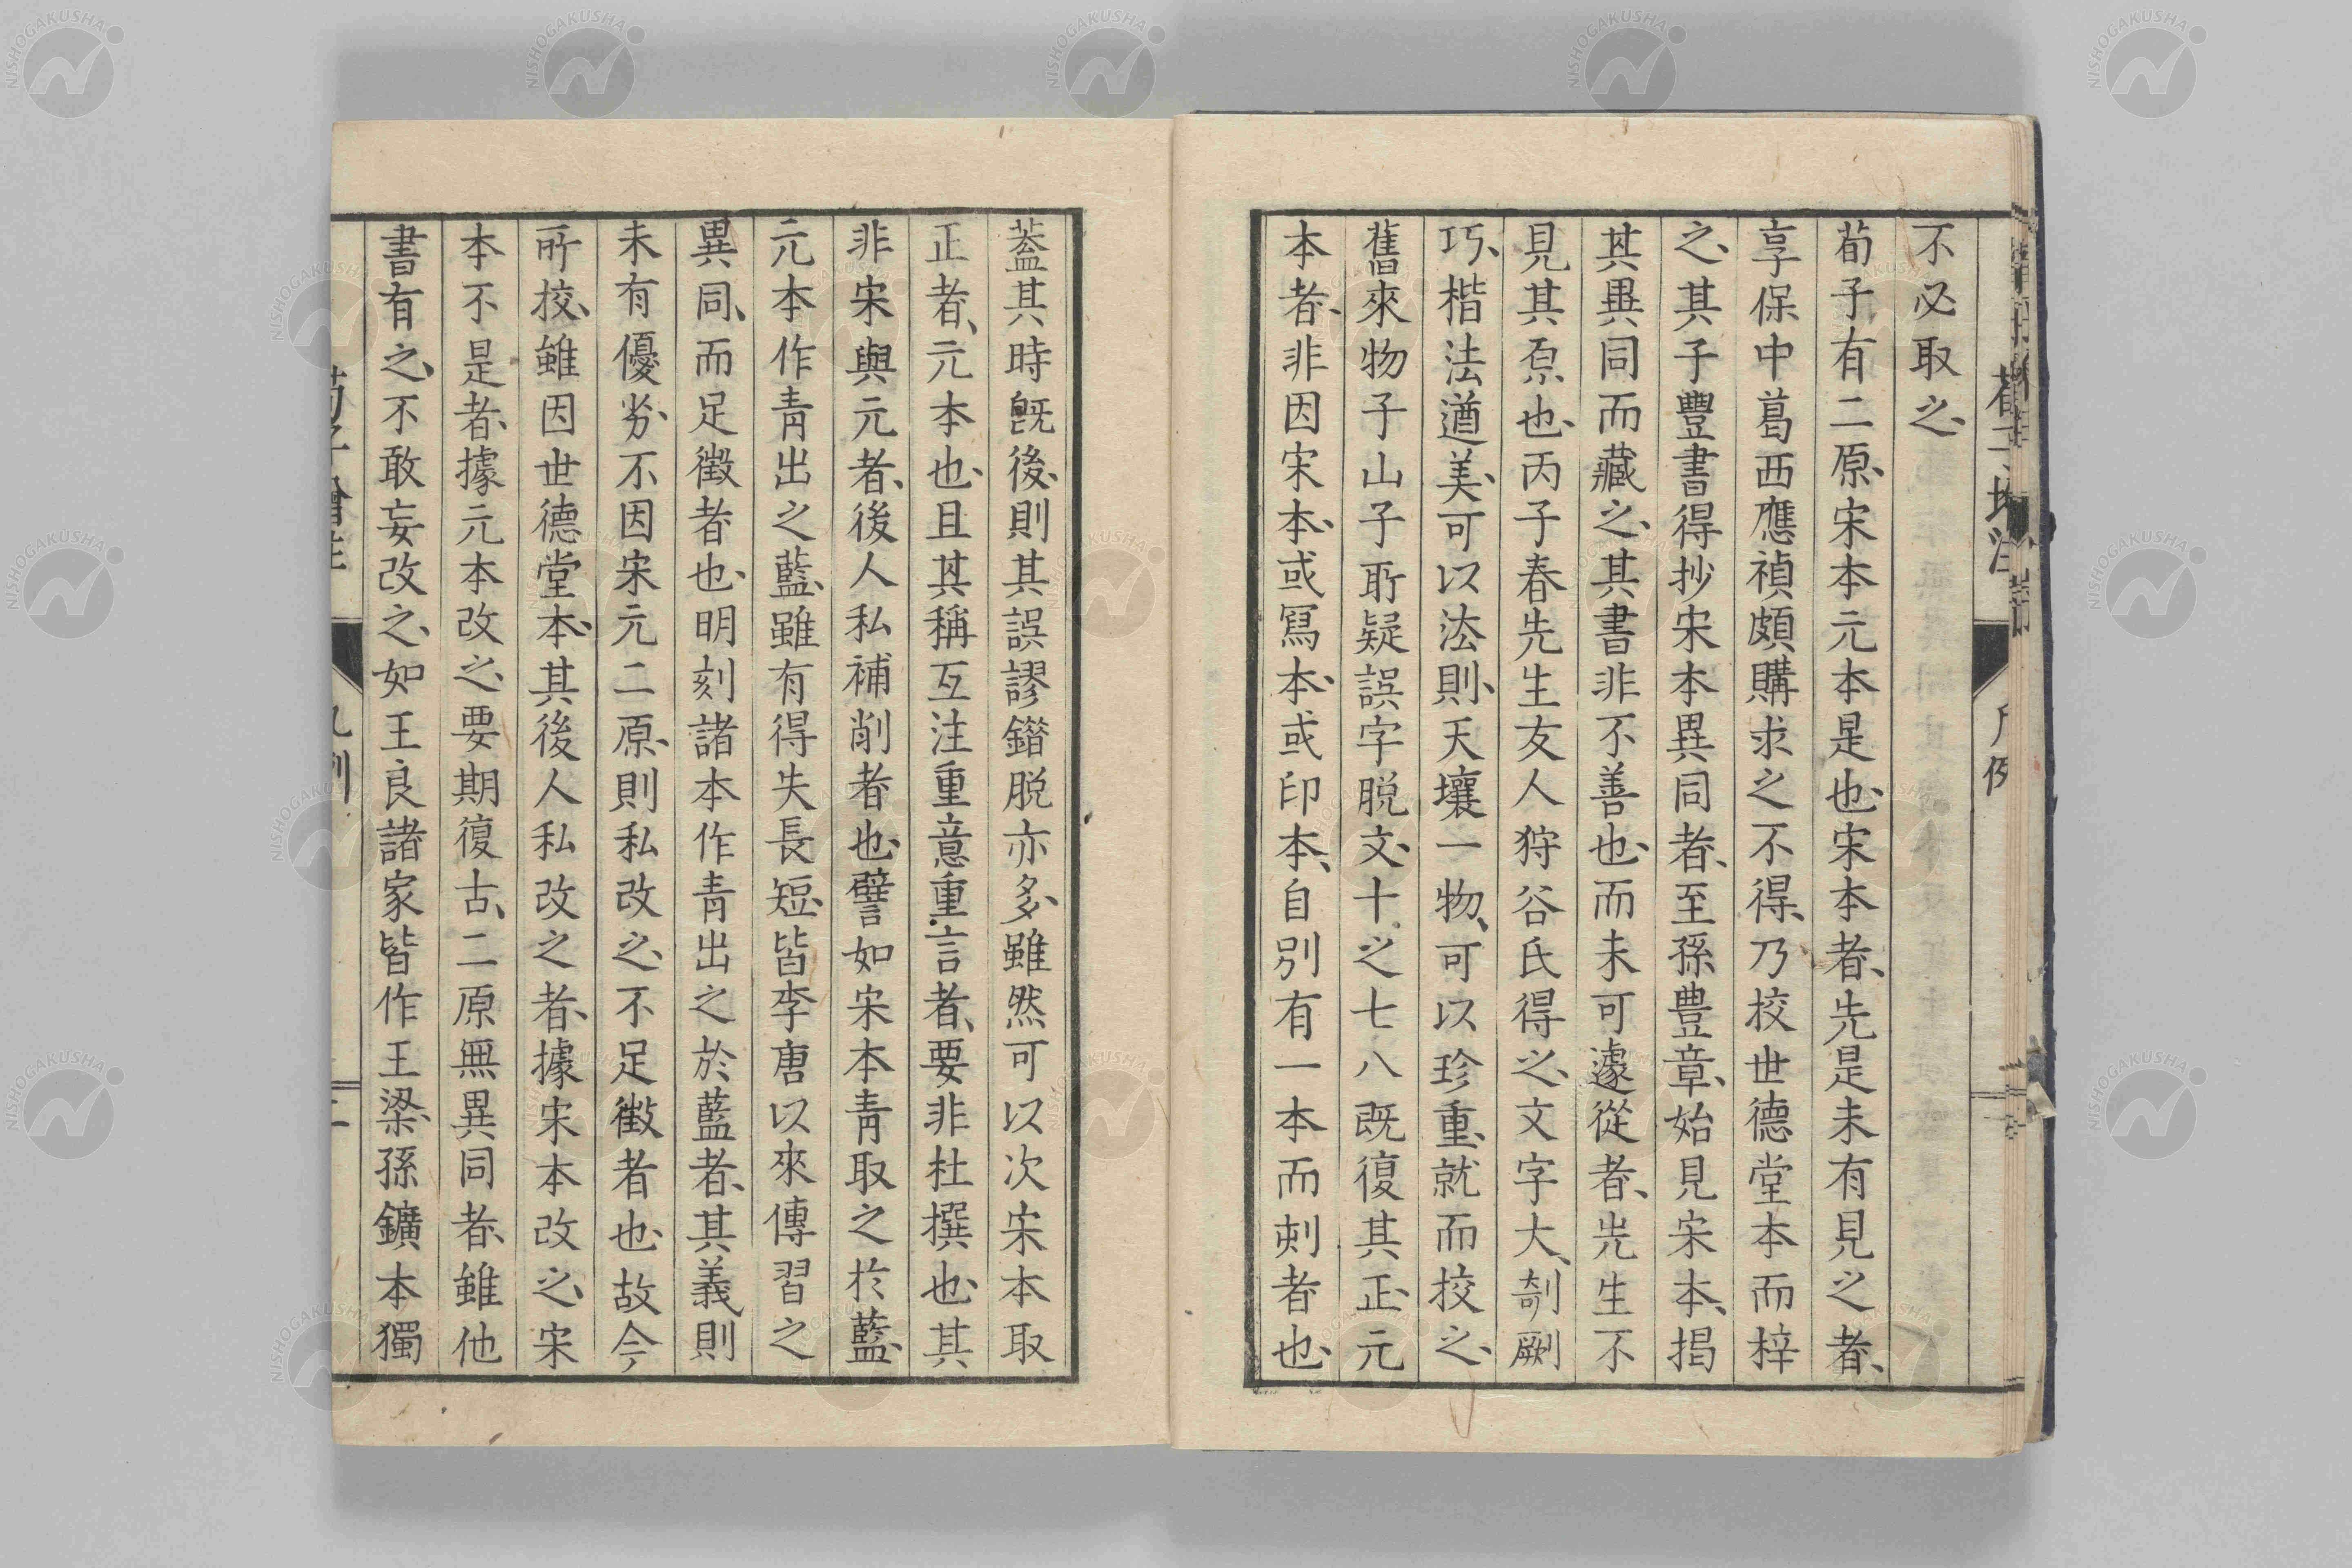 不必取之、
荀子有二原、宋本元本是也、宋本者、先是未有見之者、
享保中葛西應禎頗購求之不得、乃校世德堂本而梓
之、其子豐書得抄宋本異同者、至孫豊章、始見宋本、揭
其異同而藏之、其書非不善也、而未可遽從者、先生不
見其原也、丙子春先生友人狩谷氏得之、文字大、剞劂
巧、楷法遒美、可以法則、天壤一物、可以珍重、就而校之、
舊來物子山子所疑誤字脱文、十之七八既復其正、元
本者、非因宋本、或寫本、或印本、自別有一本而刺者也、
葢其時既後、則其誤謬鐕脱亦多、雖然可以次宋本取
正者、元本也、且其稱互注重意重言者、要非杜撰也、其
非宋與元者、後人私補削者也、譬如宋本青取之於藍、
元本作青出之藍、雖有得失長短、皆李唐以來傳習之
異同、而足徴者也、明刻諸本作青出之於藍者、其義則
未有優劣、不因宋元二原、則私改之、不足徴者也、故今
所校、雖因世德堂本、其後人私改之者、據宋本改之、宋
本不是者、據元本改之、要期復古、二原無異同者、雖他
書有之、不敢妄改之、如王良諸家皆作王梁、孫鑛本獨